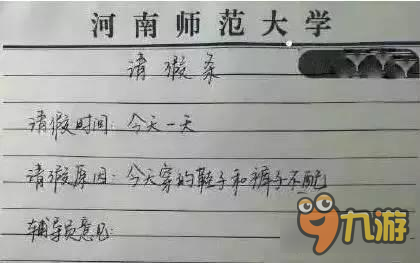 河南师范大学
请假条
请假时间：今天一天
请假原因：今天穿的鞋子和裤子不配
辅导员意见：
九游